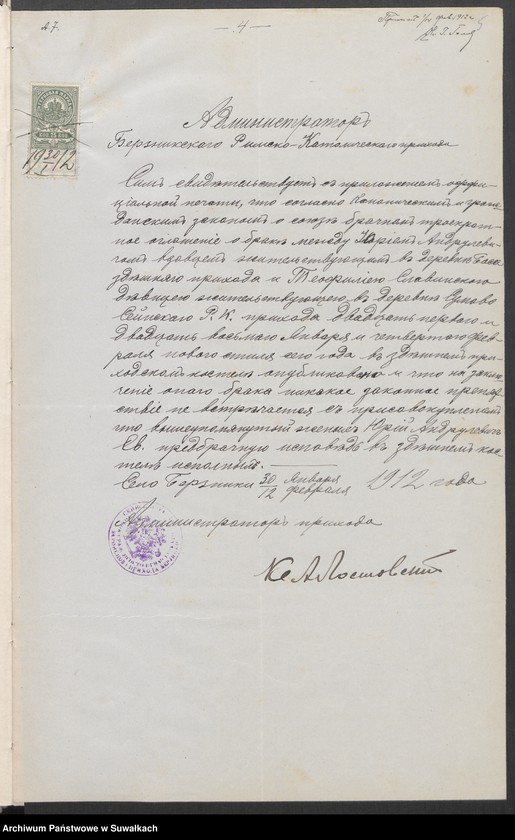 А. 7.
— 4 —
1912
30/I
Администраторъ
Берзникского Римско-Католического прихода
Симъ свидѣтельствуетъ съ приложеніемъ оффи-
ціальной печати, что согласно каноническимъ и граж-
данскимъ законамъ о союзѣ брачномъ троекрат-
ное оглашеніе о бракѣ между Юріемъ Андрулеви-
чемъ вдовцемъ жительствующимъ въ деревнѣ
здѣшняго прихода и Теофилiею Славинского
дѣвицею жительствующею въ деревнѣ
Сейнского Р. К. прихода двадцать перваго и
двадцать восьмаго Января и четвертаго Фев-
раля новаго стиля сего года въ здѣшнемъ при-
ходскомъ костелѣ опубликовано и что на заклю-
ченіе онаго брака никакое законное препят-
ствіе не встрѣчается съ присовокупленіемъ
что вышеупомянутый женихъ Юрій Андрулевичъ
Св. предбрачную исповѣдь въ здѣшнемъ кос-
телѣ исполнилъ.
Село Берзники 30/12 Января/Февраля 1912 года
Администраторъ прихода
Кс А Лостовский
Archiwum Państwowe w Suwałkach